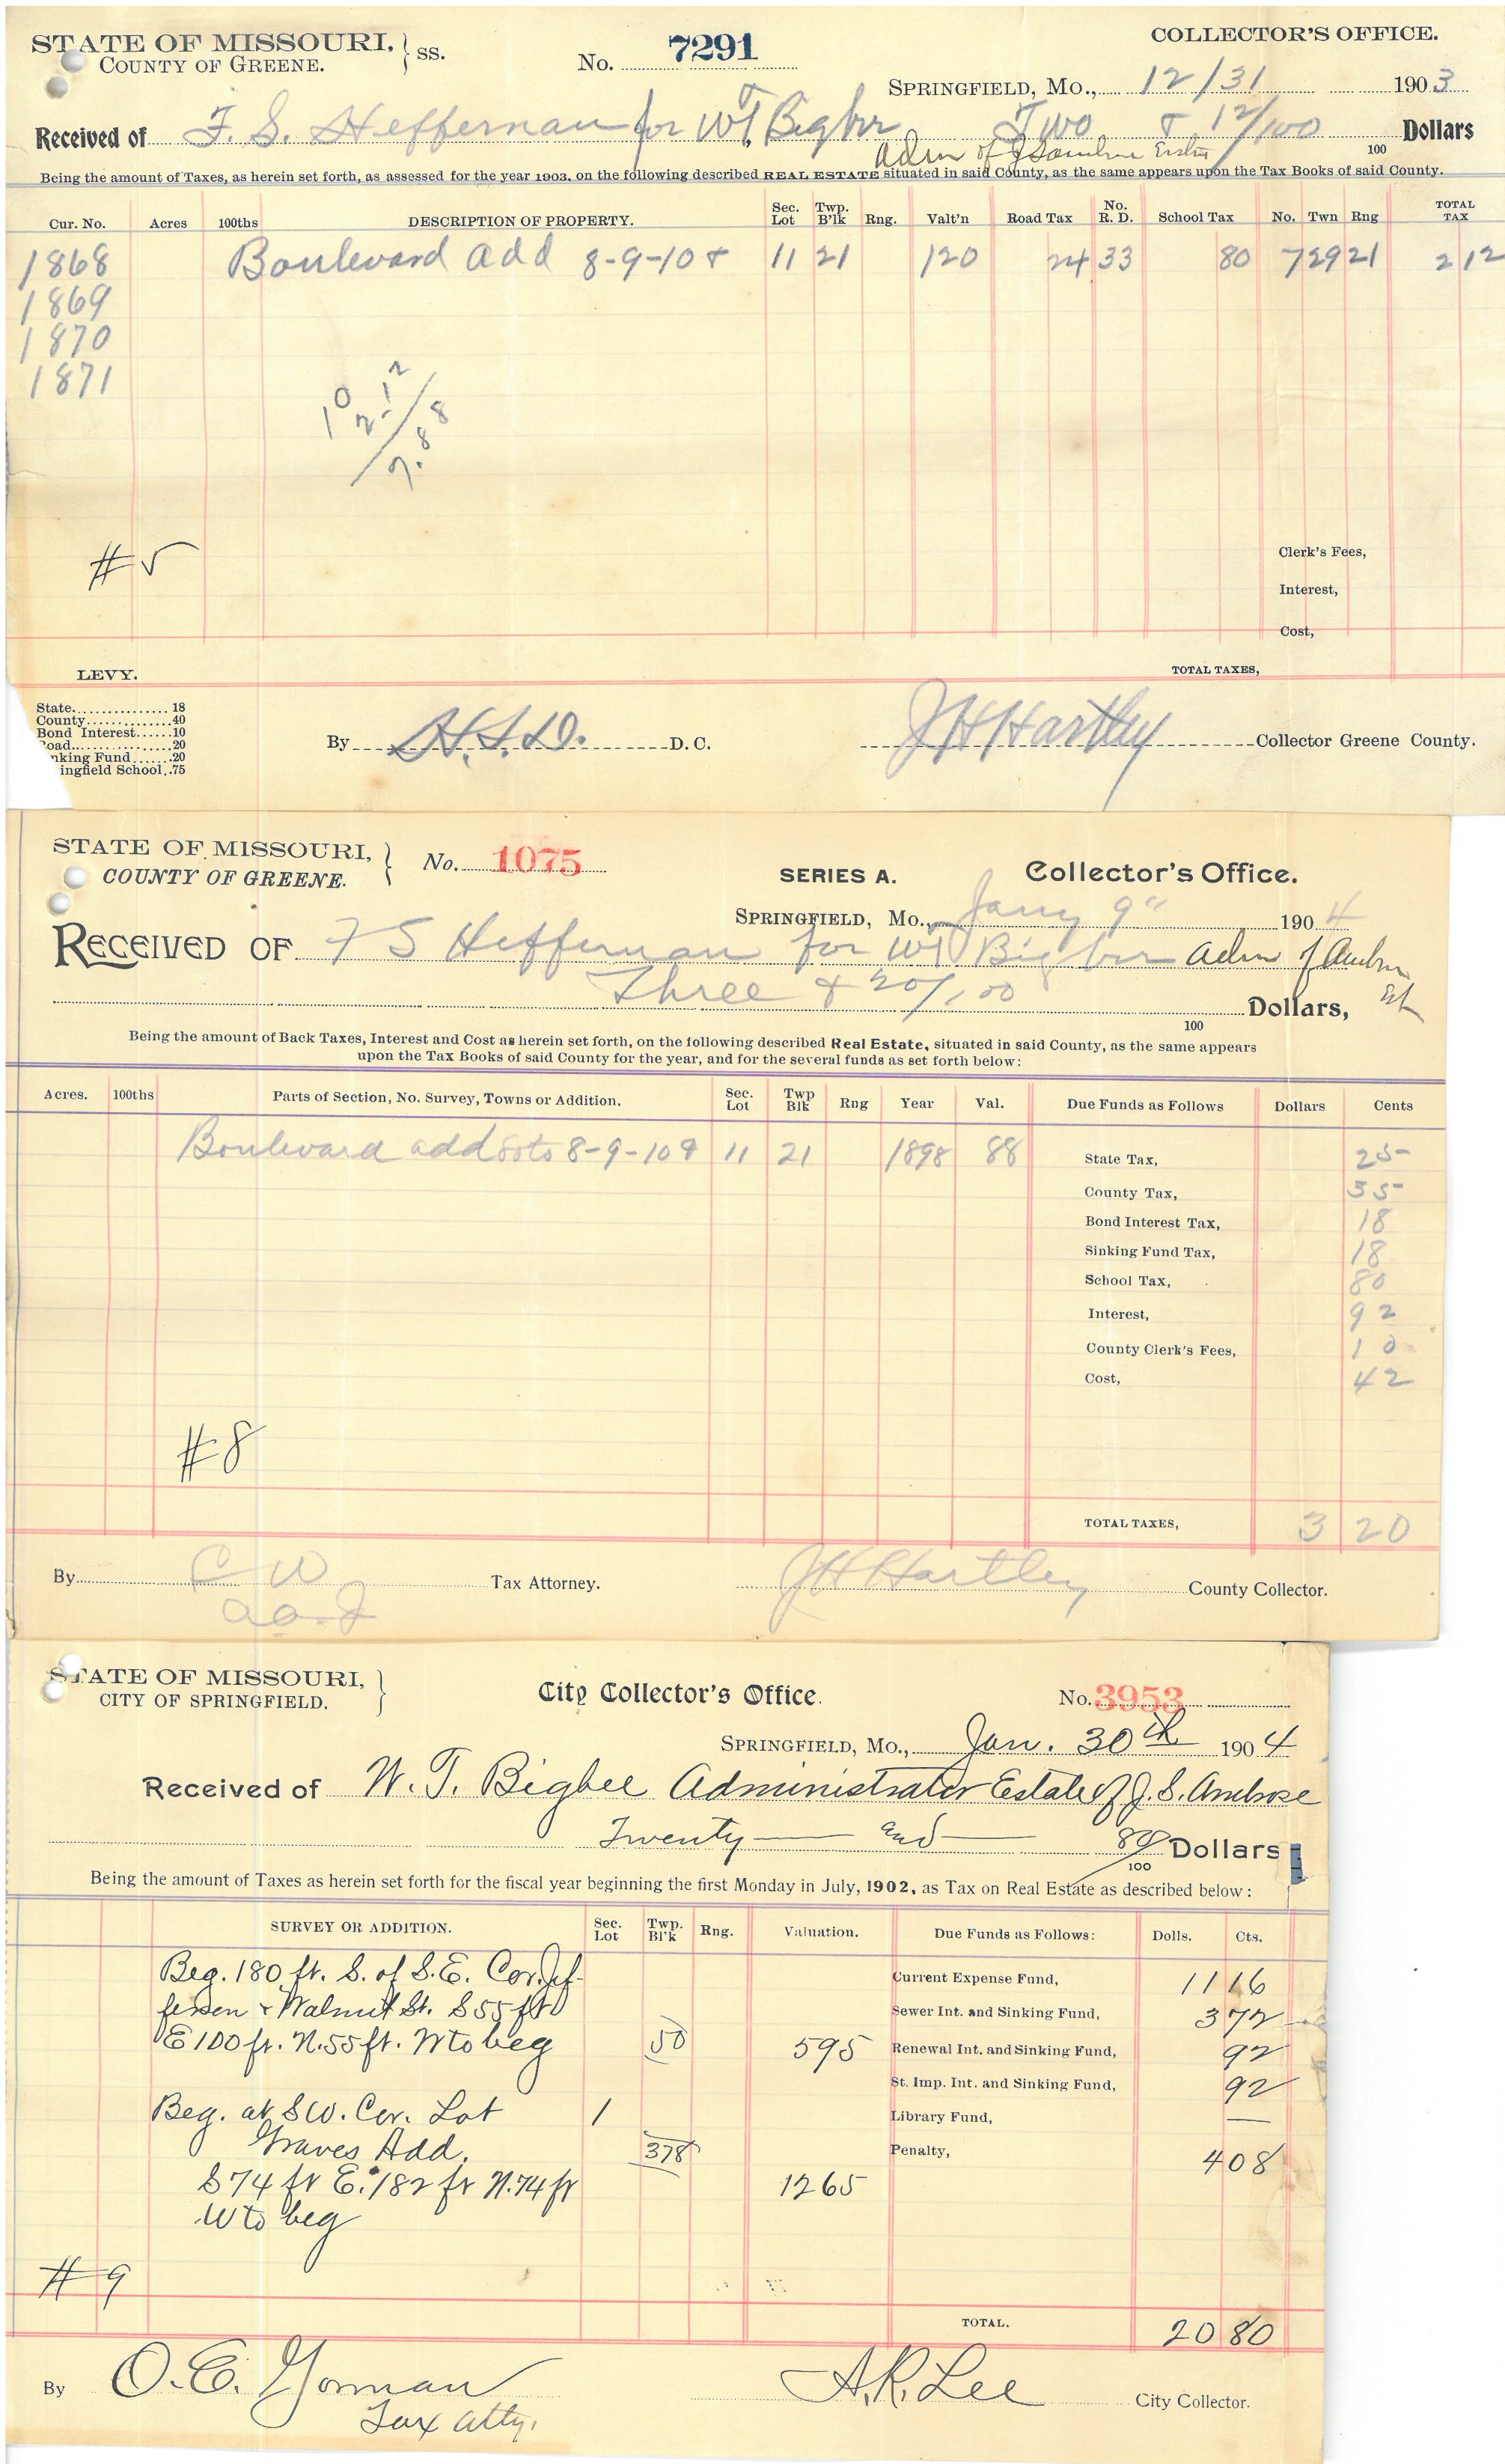 STATE OF MISSOURI, } SS.
COUNTY OF GREENE.
No. 7291
COLLECTOR'S OFFICE.
SPRINGFIELD, MO., 12/31 1903
Received of F. S. Heffernan for WT Bigbee Two & 12/100 Dollars
Adm of Estate 100
Being the amount of Taxes, as herein set forth, as assessed for the year 1903, on the following described REAL ESTATE situated in said County, as the same appears upon the Tax Books of said County.
Cur. No. Acres 100ths DESCRIPTION OF PROPERTY. Sec. Lot Twp. B'lk Rng. Valt'n Road Tax No. R. D. School Tax No. Twn Rng TOTAL TAX
1868 Boulevard add 8-9-10 & 11 21 120 24 33 80 7 29 21 2 12
1869
1870
1871
10
2.12
7.88
#5
Clerk's Fees,
Interest,
Cost,
TOTAL TAXES,
LEVY.
State 18
County 40
Bond Interest 10
oad 20
nking Fund 20
ingfield School .75
By H.S.D. D. C.
JH Hartley Collector Greene County.
STATE OF MISSOURI, }
COUNTY OF GREENE.
No. 1075
SERIES A.
Collector's Office.
SPRINGFIELD, MO., Jany 9" 1904
RECEIVED OF F S Heffernan for WT Bigbee Adm of
Three & 20/100 Dollars, Est
100
Being the amount of Back Taxes, Interest and Cost as herein set forth, on the following described Real Estate, situated in said County, as the same appears
upon the Tax Books of said County for the year, and for the several funds as set forth below:
Acres. 100ths Parts of Section, No. Survey, Towns or Addition. Sec. Lot Twp Blk Rng Year Val. Due Funds as Follows Dollars Cents
Boulevard add Lots 8-9-10 & 11 21 1898 88 State Tax, 25
County Tax, 35
Bond Interest Tax, 18
Sinking Fund Tax, 18
School Tax, 80
Interest, 92
County Clerk's Fees, 10
Cost, 42
#8
TOTAL TAXES, 3 20
By C W Tax Attorney.
JH Hartley County Collector.
STATE OF MISSOURI, }
CITY OF SPRINGFIELD.
City Collector's Office.
No. 3953
SPRINGFIELD, MO., Jan. 30th 1904
Received of W. T. Bigbee Administrator Estate of J. S. Ambrose
Twenty and 80/100 Dollars
Being the amount of Taxes as herein set forth for the fiscal year beginning the first Monday in July, 1902, as Tax on Real Estate as described below:
SURVEY OR ADDITION. Sec. Lot Twp. Bl'k Rng. Valuation. Due Funds as Follows: Dolls. Cts.
Beg. 180 ft. S. of S.E. Cor. Jef- Current Expense Fund, 11 16
ferson & Walnut St. S 55 ft Sewer Int. and Sinking Fund, 3 72
E 100 ft. N. 55 ft. W to beg 50 595 Renewal Int. and Sinking Fund, 92
St. Imp. Int. and Sinking Fund, 92
Beg. at SW. Cor. Lot 1 Library Fund, —
Graves Add. 378 Penalty, 4 08
S 74 ft E. 182 ft N. 74 ft 1265
W to beg
#9
TOTAL. 20 80
By O. E. Gorman
Tax Atty.
A. R. Lee City Collector.